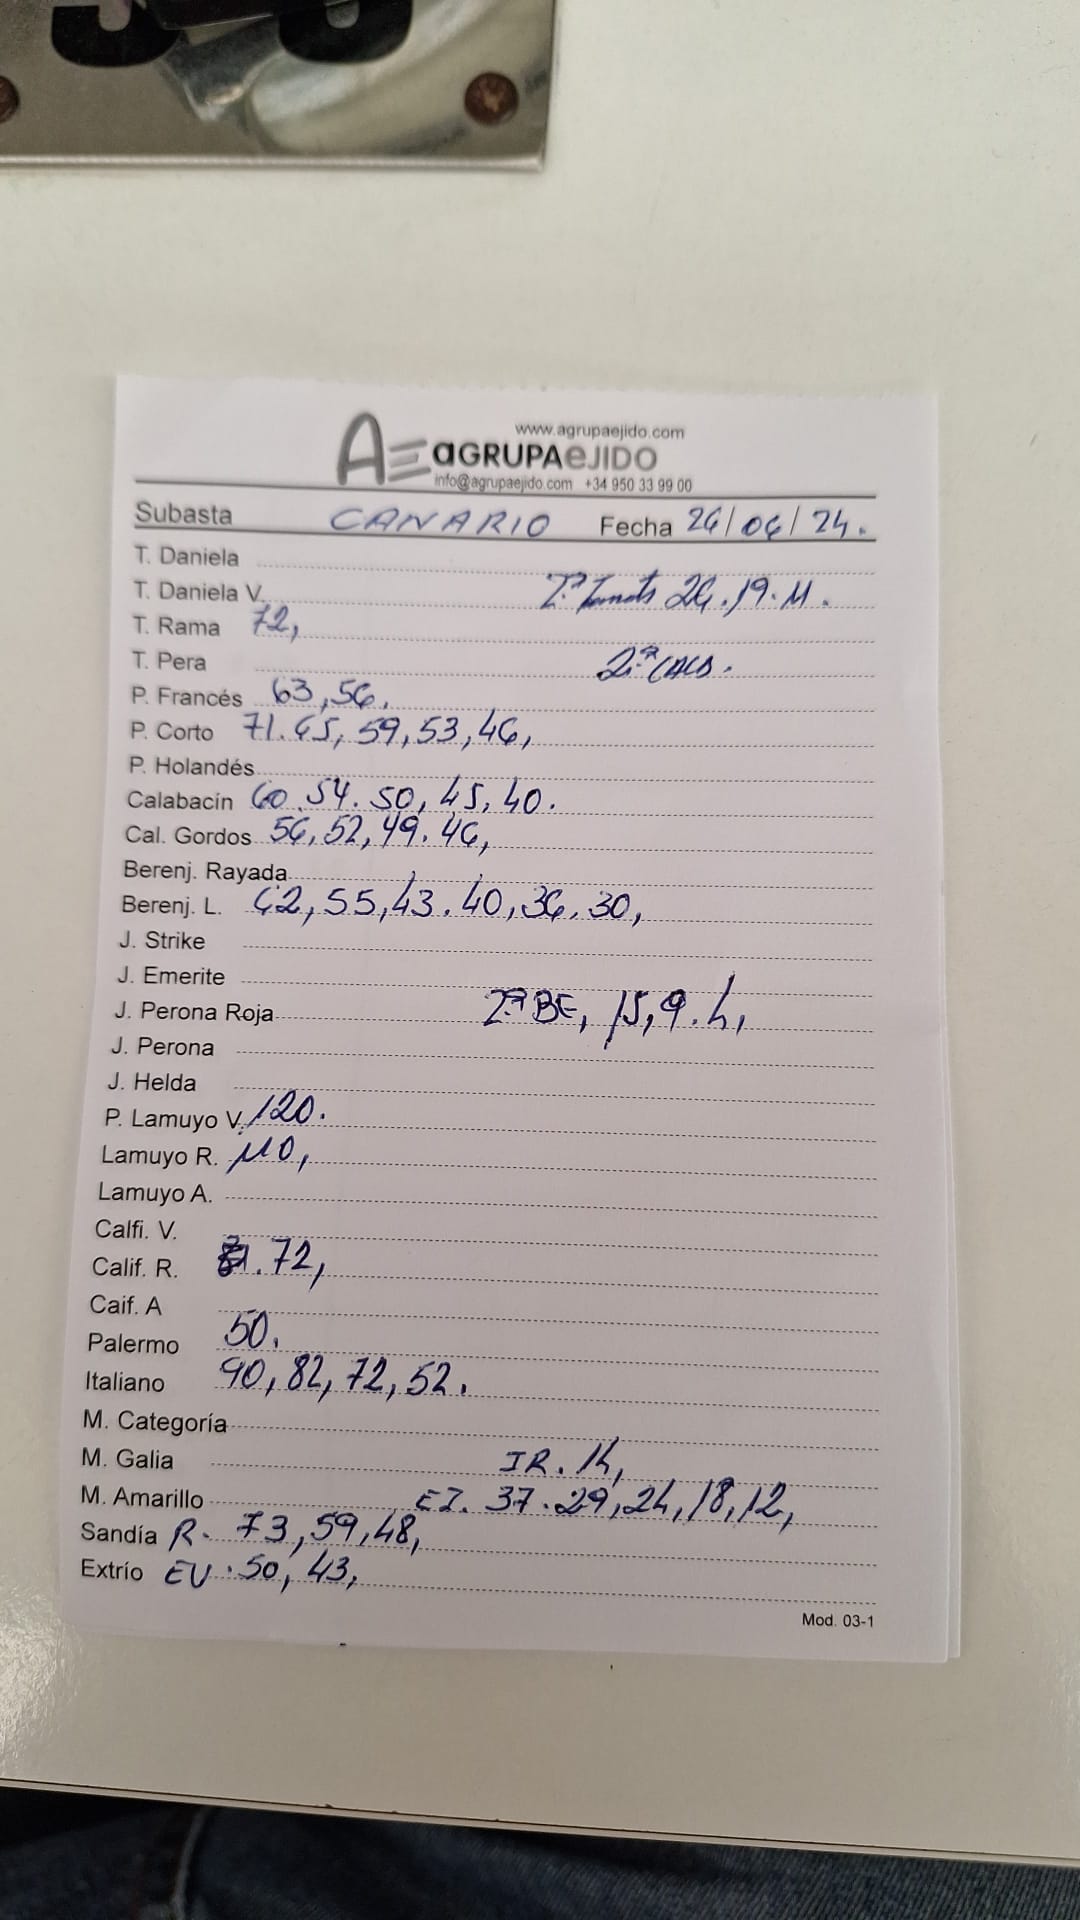 www.agrupaejido.com
AE aGRUPAeJIDO
info@agrupaejido.com +34 950 33 99 00
Subasta CANARIO Fecha 26/06/24.
T. Daniela
T. Daniela V. 2ª Tomate 26.19.11.
T. Rama 72,
T. Pera 2ª CALB.
P. Francés 63,56,
P. Corto 71.65,59,53,46,
P. Holandés
Calabacín 60.54.50,45,40.
Cal. Gordos 56,52,49.46,
Berenj. Rayada
Berenj. L. 62,55,43.40,36.30,
J. Strike
J. Emerite
J. Perona Roja 2ª BE, 15,9.4,
J. Perona
J. Helda
P. Lamuyo V. 120.
Lamuyo R. 110,
Lamuyo A.
Calfi. V.
Calif. R. .72,
Caif. A
Palermo 50.
Italiano 90,82,72,52.
M. Categoría
M. Galia IR. 14,
M. Amarillo EI. 37.29,24,18,12,
Sandía R. 73,59,48,
Extrío EU.50,43,
Mod. 03-1